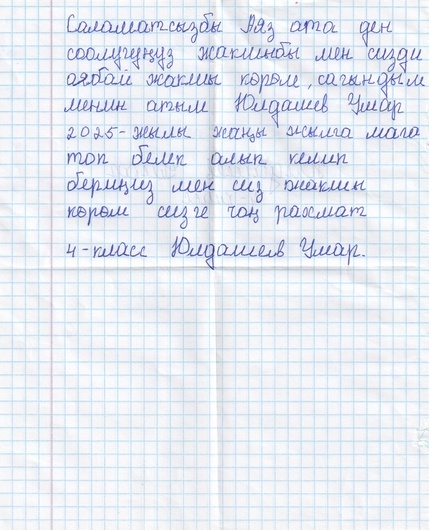 Саламатсызбы Аяз ата ден
соолугуңуз жакшыбы мен сизди
аябай жакшы көрөм, сагындым
менин атым Юлдашев Умар
2025-жылы жаңы жылга мага
топ белек алып келип
бериңиз мен сиз жакшы
көрөм сизге чоң рахмат
4-класс Юлдашев Умар.